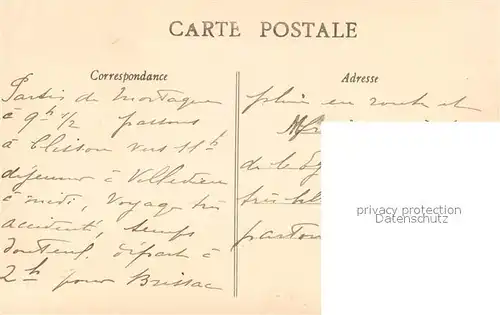 CARTE POSTALE
Correspondance
Adresse
Partis de Mortagne
à 9h 1/2 passons
à Clisson vers 11h
déjeuner à Villedieu
à midi, voyage très
accidenté, temps
douteux. départ à
2h pour Brissac
pluie en route et
de la
très
partou
privacy protection
Datenschutz